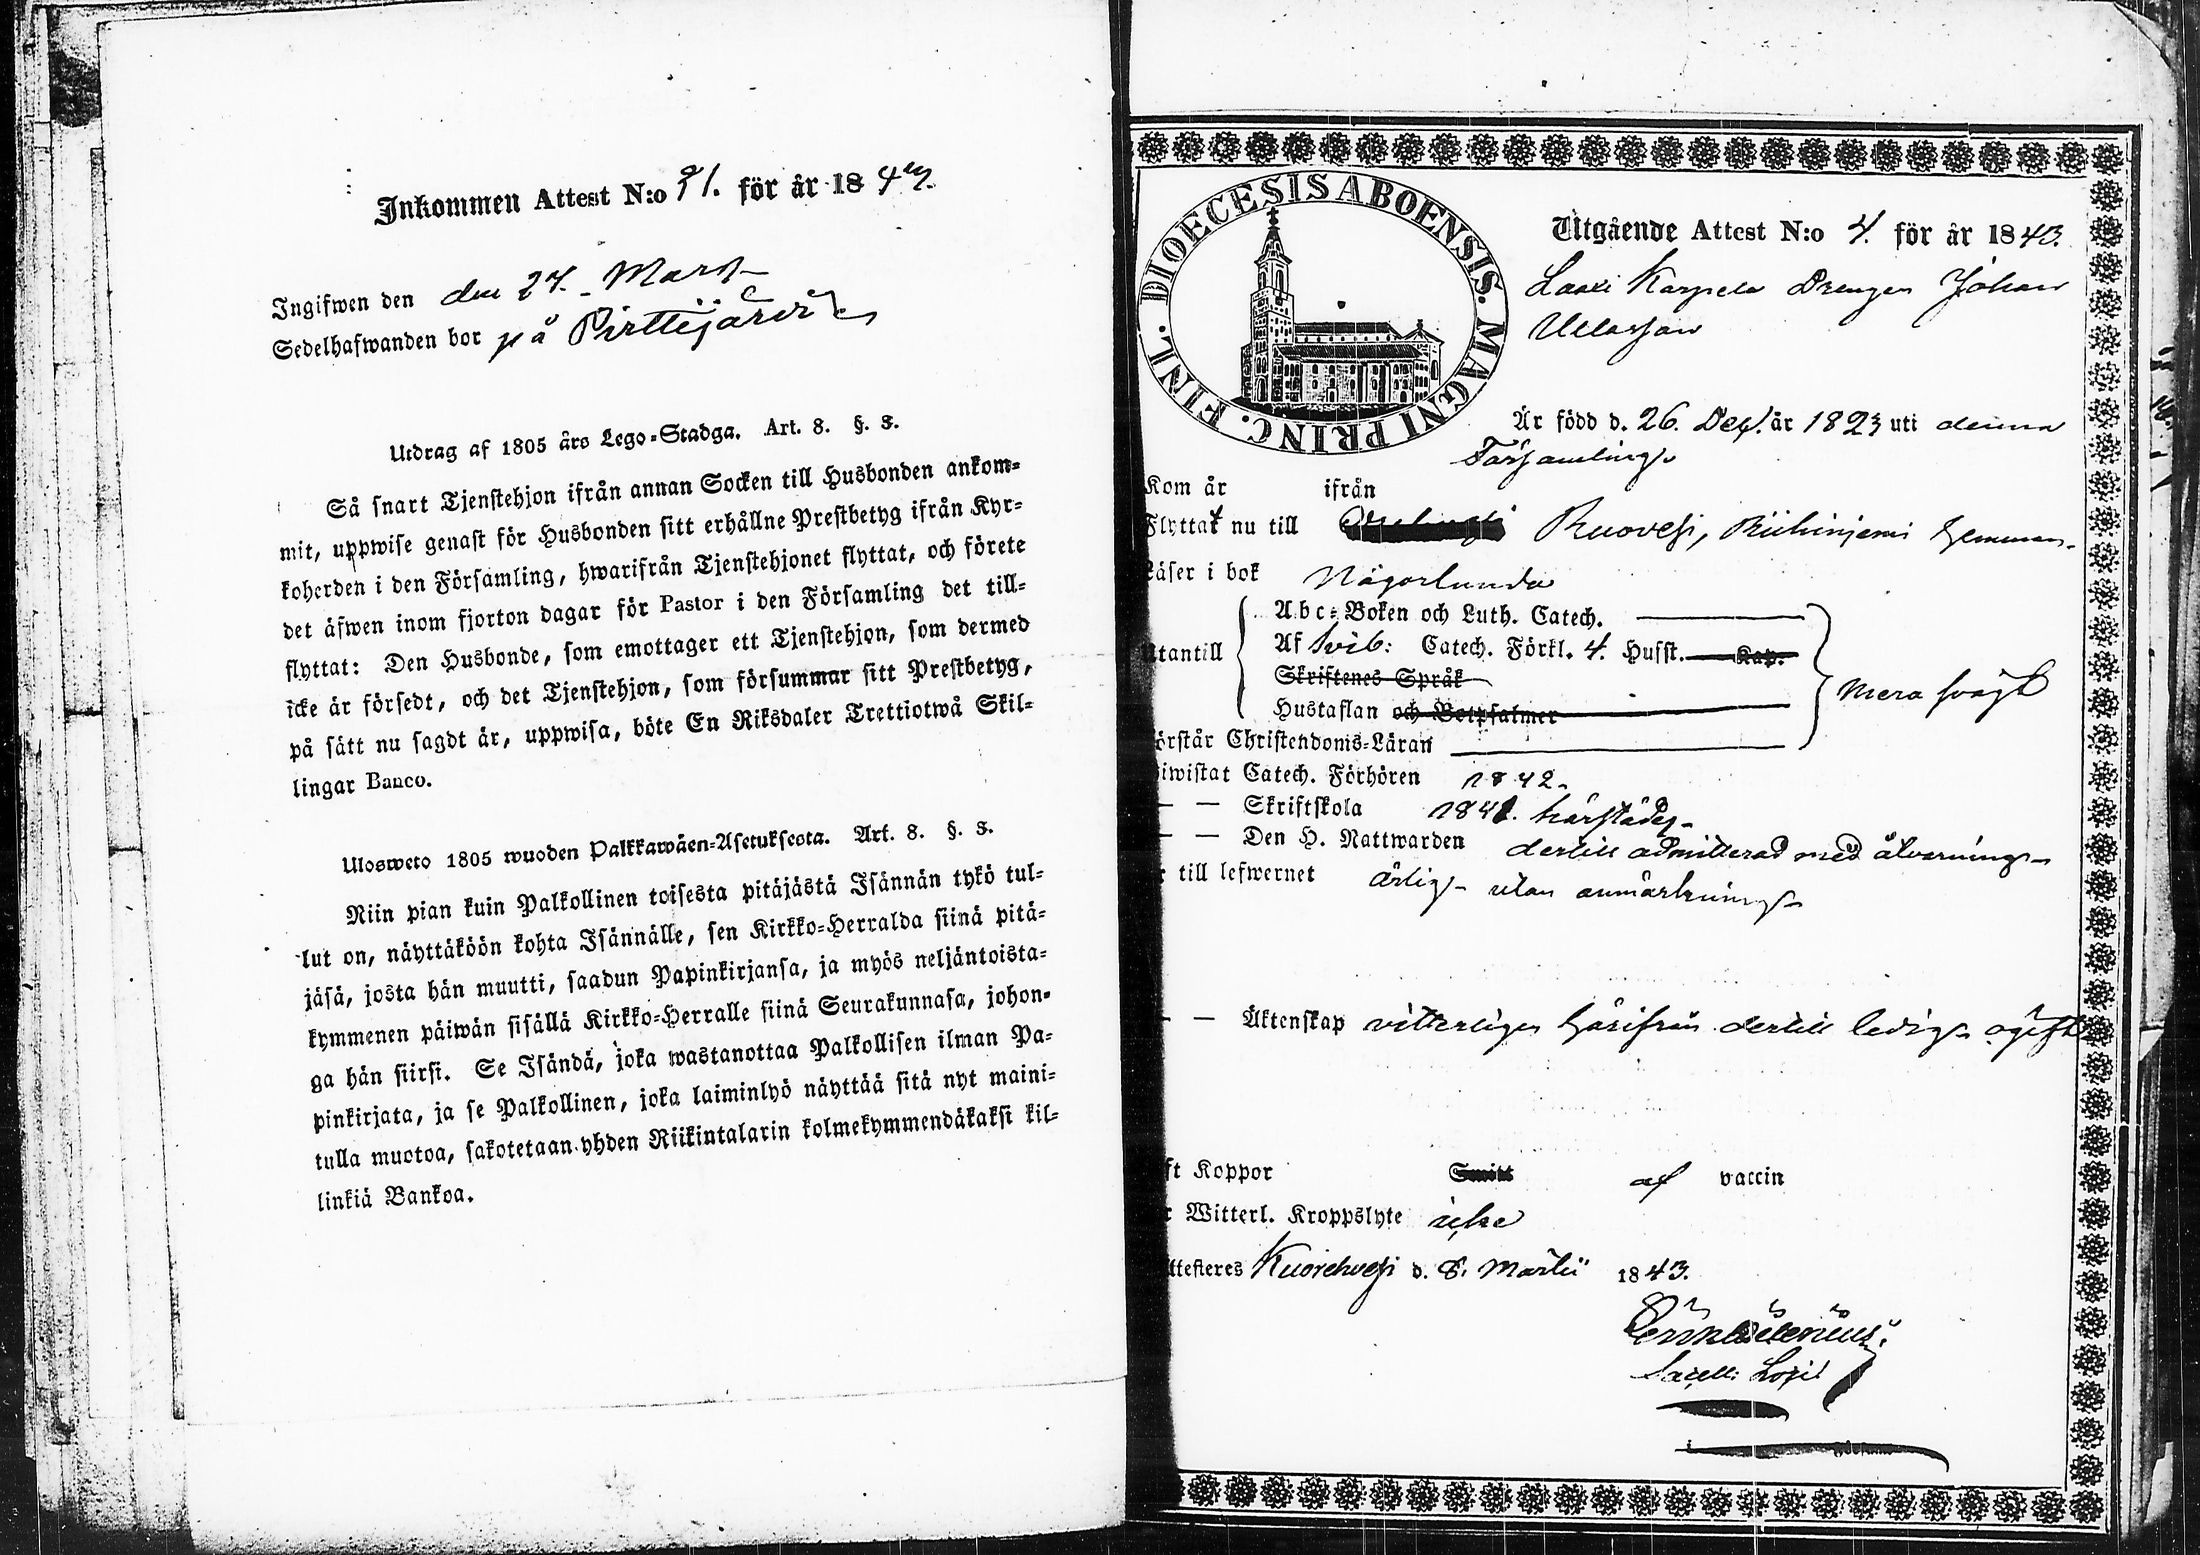 Inkommen Attest N:o 91. för år 1843.
Ingifwen den den 27. Mars
Sedelhafwanden bor på Pirttijärvi
Utdrag af 1805 års Lego-Stadga. Art. 8. §. 3.
Så snart Tjenstehjon ifrån annan Socken till Husbonden ankom-
mit, uppwise genast för Husbonden sitt erhållne Prestbetyg ifrån Kyr-
koherden i den Församling, hwarifrån Tjenstehjonet flyttat, och förete
det äfwen inom fjorton dagar för Pastor i den Församling det till-
flyttat: Den Husbonde, som emottager ett Tjenstehjon, som dermed
icke är försedt, och det Tjenstehjon, som försummar sitt Prestbetyg,
på sätt nu sagdt är, uppwisa, böte En Riksdaler Trettiotwå Skil-
lingar Banco.
Ulosweto 1805 wuoden Palkkawäen-Asetuksesta. Art. 8. §. 3.
Niin pian kuin Palkollinen toisesta pitäjästä Isännän tykö tul-
lut on, näyttäköön kohta Isännälle, sen Kirkko-Herralda siinä pitä-
jäsä, josta hän muutti, saadun Papinkirjansa, ja myös neljäntoista-
kymmenen päiwän sisällä Kirkko-Herralle siinä Seurakunnasa, johon-
ga hän siirsi. Se Isändä, joka wastanottaa Palkollisen ilman Pa-
pinkirjata, ja se Palkollinen, joka laiminlyö näyttää sitä nyt maini-
tulla muotoa, sakotetaan yhden Riikintalarin kolmekymmendäkaksi kil-
linkiä Bankoa.
DIOECESIS ABOENSIS. MAGNI PRINC. FINL.
Utgående Attest N:o 4. för år 1843.
Karpela Drengen Johan
Är född d. 26. Dec. år 1823 uti denna
Församling
Kom år ifrån
Flyttat nu till Ruovesi, Riihiniemi hemman
Läser i bok Någorlunda
Utantill
Abc-Boken och Luth. Catech.
Af Svib: Catech. Förkl. 4. Husst. Kap.
Skriftenes Språk
Hustaflan och Botpsalmer
mera svagt
örstår Christendoms-Läran
iwistat Catech. Förhören 1842.
— — Skriftskola 1841. härstädes
— — Den H. Nattwarden dertill admitterad med alvarning
r till lefwernet ärlig utan anmärkning
— — Äktenskap vitterligen härifrån dertill ledig ogift
ft Koppor af vaccin
r Witterl. Kroppslyte icke
ttesteres Kuorehvesi d. 8. Martii 1843.
Sacell: Loci